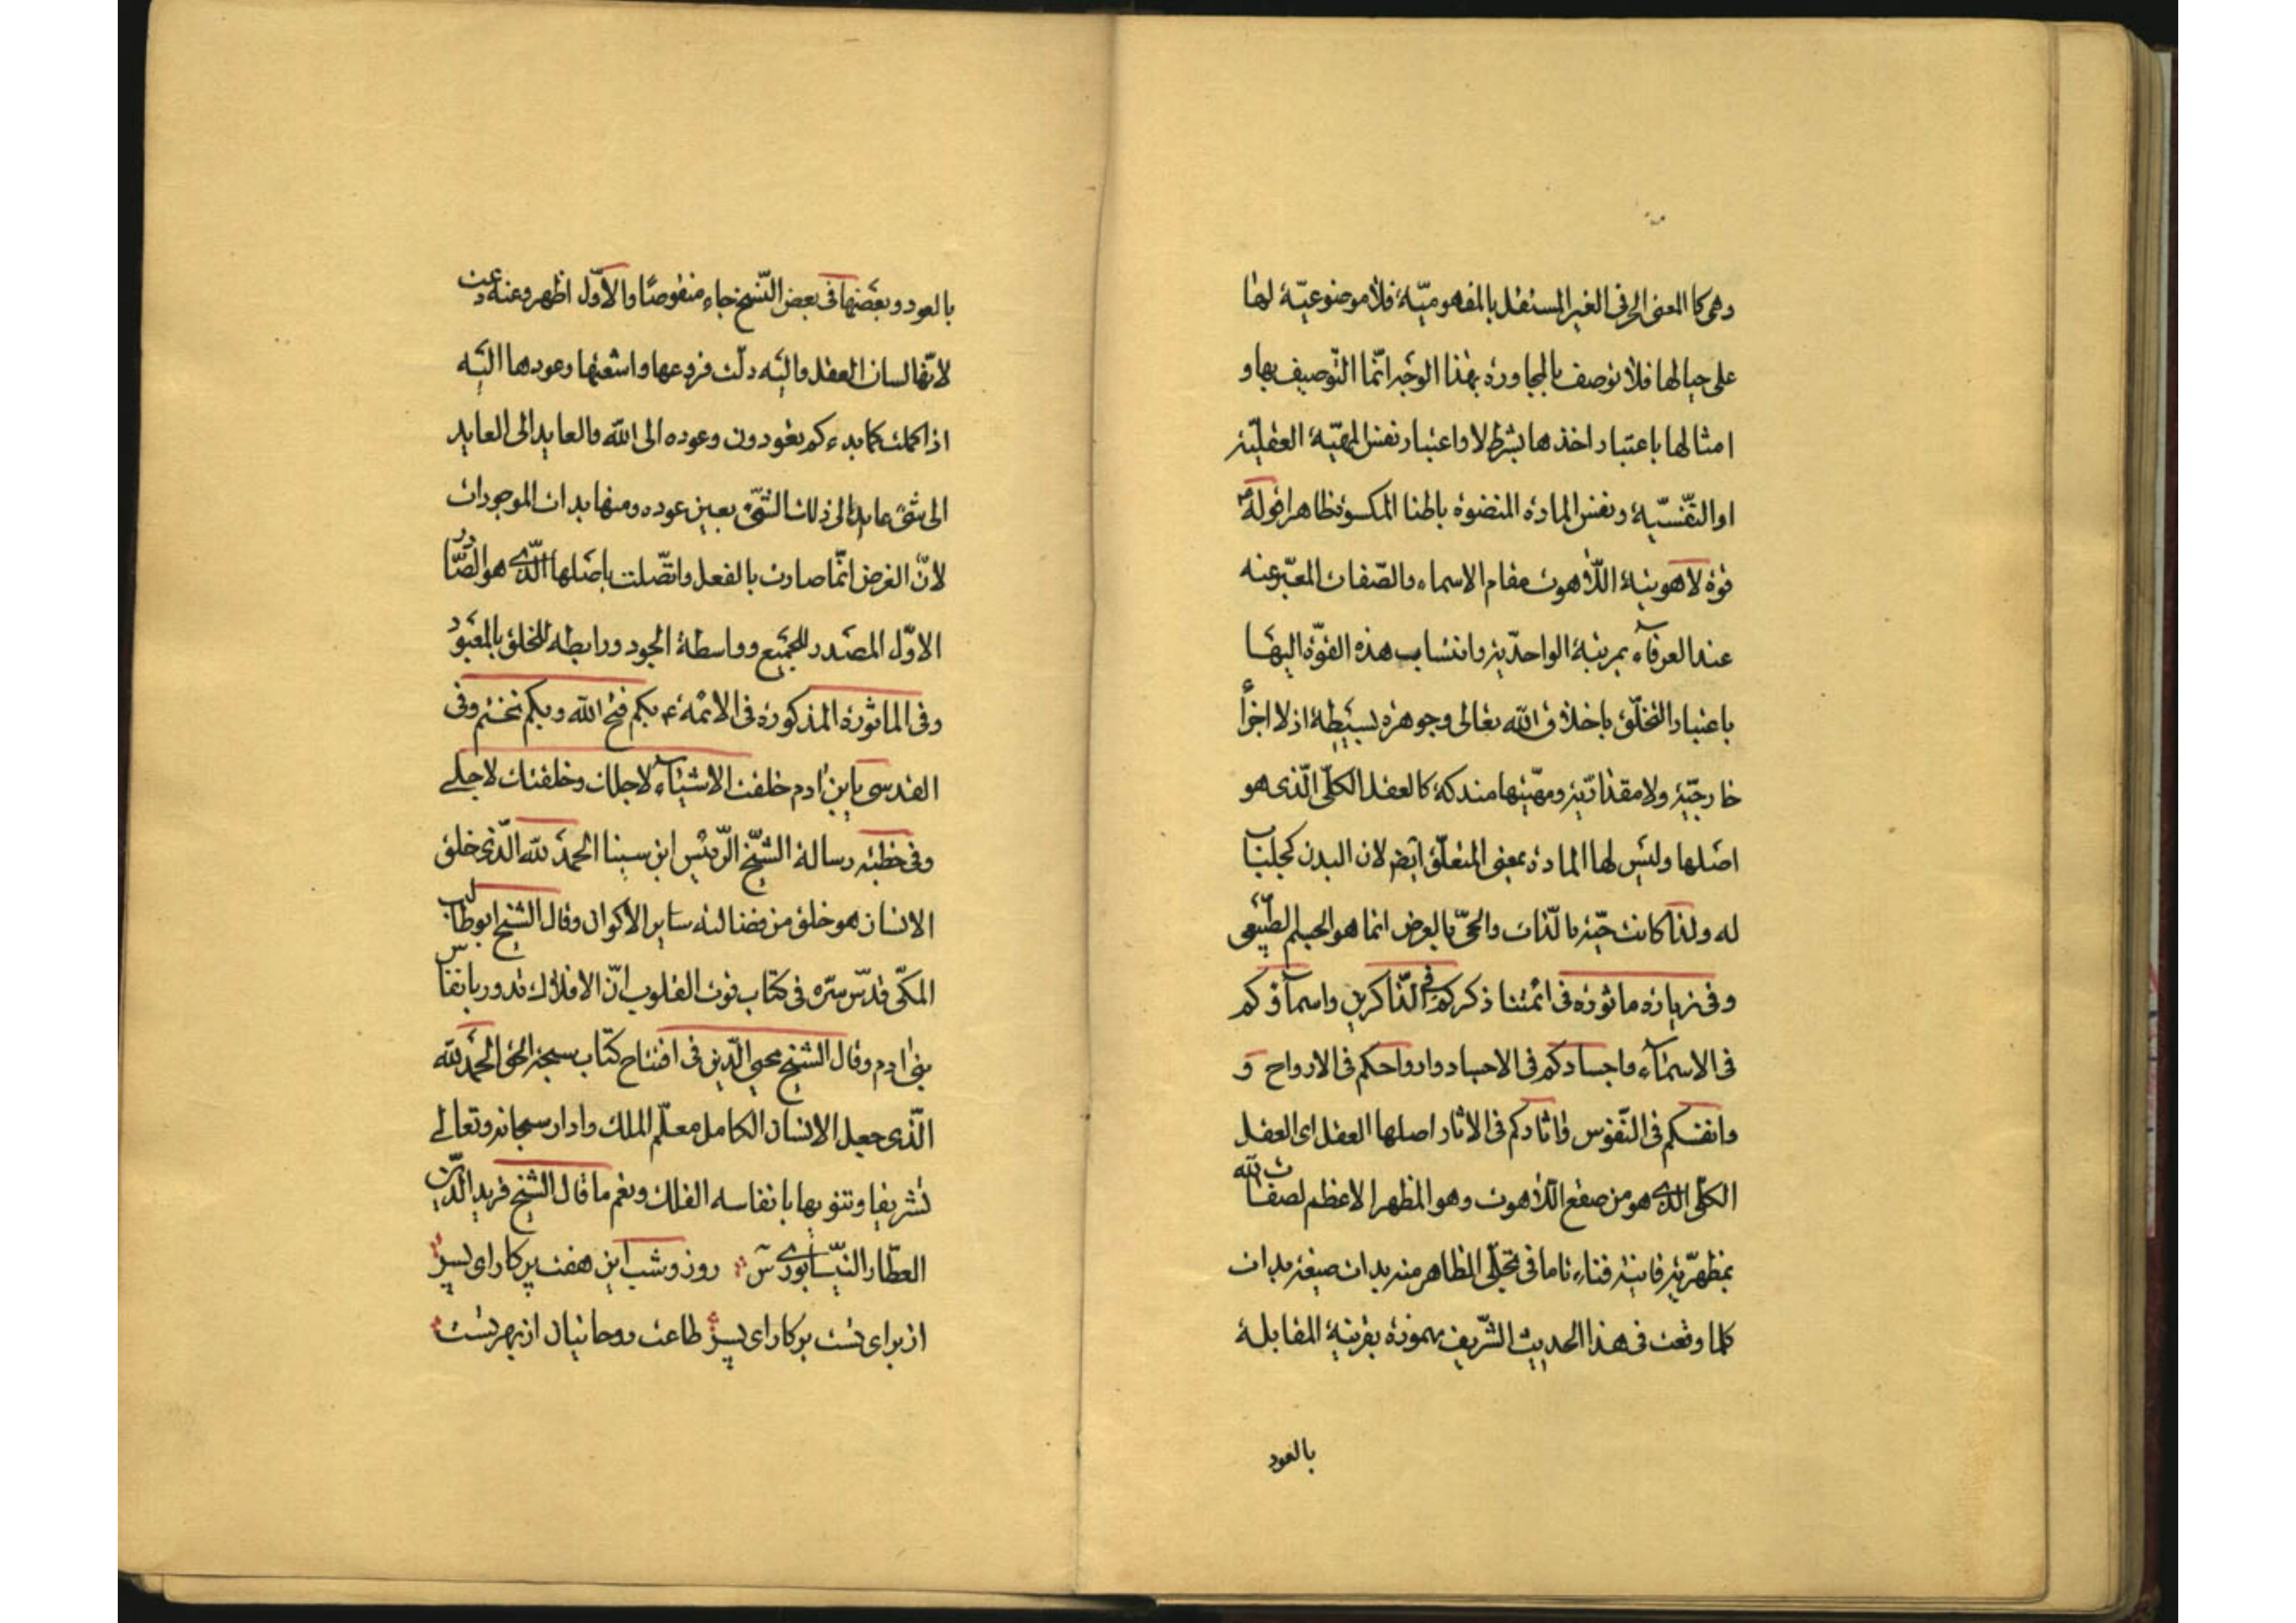 وهی کا المعنی الحرفی الغیر المستقل بالمفهومیّة فلا موضوعیّة لها
علی حیالها فلا توصف بالمجاورة بهذا الوجه انّما التّوصیف بها و
امثالها باعتبار اخذها بشرط لا واعتبار نفس المهیّة العقلیّة
او النّفسیّة ونفس المادة المنضوة باطنا المکسوة ظاهرا قوله
قوة لاهوتیة اللّاهوت مقام الاسماء والصّفات المعبّر عنه
عند العرفاء بمرتبة الواحدیّة وانتساب هذه القوّة الیها
باعتبار التخلّق باخلاق الله تعالی وجوهرة بسیطة اذ لا اجزاء
خارجیّة ولا مقداریّة ومهیّتها مندکة کالعقل الکلّی الّذی هو
اصلها ولیس لها المادة بمعنی المتعلّق ایض لان البدن کجلباب
له ولذا کانت حیّة بالذّات والحیّ بالعرض انما هو الجسم الطبّیعی
وفی زیارة ماثورة فی ائمّتنا ذکرکم فی الذّاکرین واسماؤکم
فی الاسماء واجسادکم فی الاجساد وارواحکم فی الارواح و
وانفسکم فی النّفوس واثارکم فی الاثار اصلها العقل ای العقل
الکلّی الذی هو من صقع اللّاهوت وهو المظهر الاعظم لصفات الله
بمظهریّة فانیة فناء تاما فی تجلّی الظاهر منه بدات صیغة بدات
کلما وقعت فی هذا الحدیث الشّریف مهموزة بقرینة المقابلة
بالعود
بالعود وبعضها فی بعض النّسخ جاء منقوصًا والاوّل اظهر وعنه دعت
لانّها لسان العقل والیه دلّت فروعها واشعتها وعودها الیه
اذا کملت کما بدءکم تعودون وعوده الی الله والعاید الی العاید
الی شیء عاید الی ذلک الشّیء بعین عوده ومنها بدات الموجودات
لانّ الغرض انّما صارت بالفعل واتّصلت باصلها الّذی هو الصّادر
الاوّل المصدر للجمیع وواسطة الجود ورابطه للخلق بالمعبود
وفی الماثورة المذکورة فی الائمّة ع بکم فتح الله وبکم تختم وفی
القدسی یابن ادم خلقت الاشیاء لاجلک وخلقتک لاجلے
وفی خطبة رسالة الشیّخ الرّئیس ابن سینا الحمد لله الّذی خلق
الانسان هو خلق من فضالته سایر الاکوان وقال الشیخ ابو طالب
المکّی قدّس سرّه فی کتاب قوت القلوب انّ الافلاک تدور بانفاس
بنی ادم وقال الشیخ محیی الّدین فی افتتاح کتاب سبحة الحق الحمد لله
الّذی جعل الانسان الکامل معلّم الملک وادار سبحانه وتعالے
تشریفا وتنویها بانفاسه الفلک ونعم ما قال الشیخ فرید الّدین
العطّار النیّسابوری س روز وشب این هفت پرکار ای پسر
از برای تست برکار ای پسر طاعت روحانیان از بهر تست